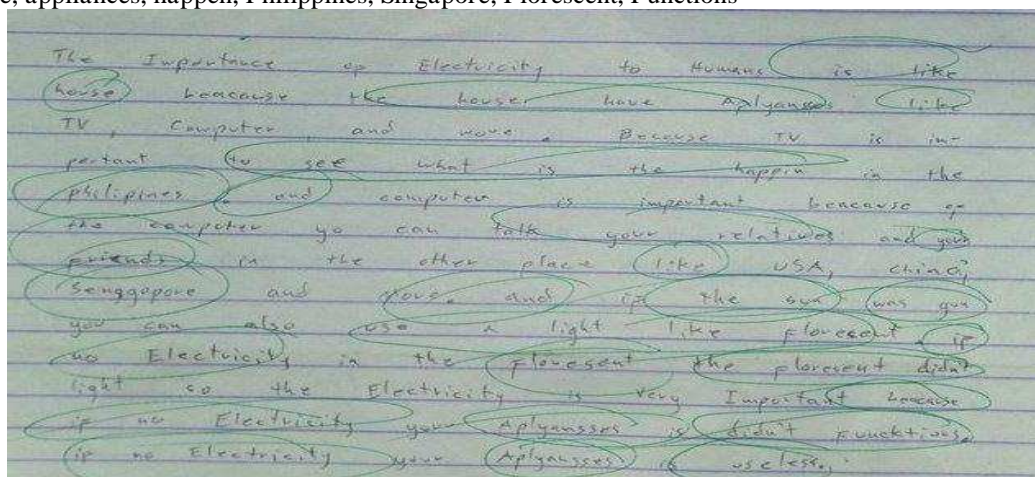 e, appliances, happen, Philippines, Singapore, Florescent, Functions
The Importance op Electricity to Humans is like
house beacause the houses have Aplyansses like
TV, Computer, and more. Because TV is im-
portant to see what is the happin in the
philipines. and computer is important beacause op
the computer yo can talk your relatives and your
Friends in the other place like USA, china,
Senggapore and more. and ip the sun was gon
you can also use a light like Florecent. ip
no Electricity in the Floresent the plorecent didnt
light so the Electricity is very Important beacause
ip no Electricity your Aplyansses is didn't Funcktions.
ip no Electricity your Aplyansses is useless.